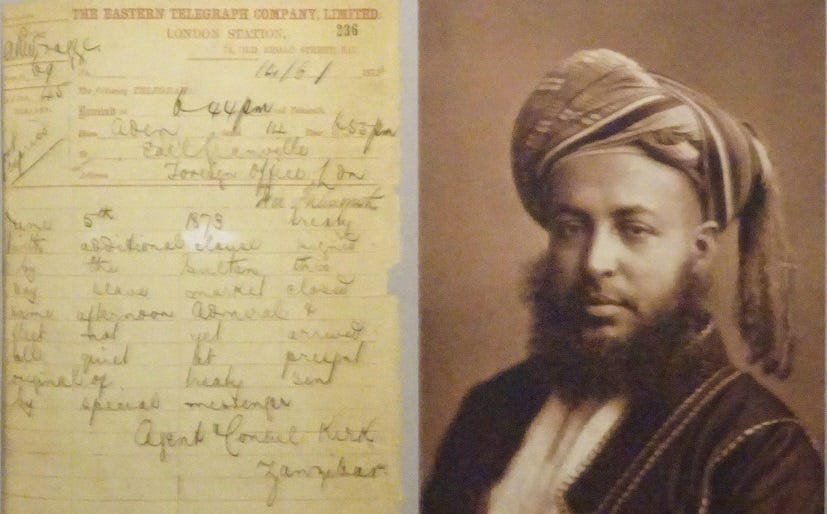 THE EASTERN TELEGRAPH COMPANY, LIMITED.
LONDON STATION,
OLD BROAD STREET, E.C.
236
14/6/ 187
The following TELEGRAM
6-44pm
From Aden 14 655pm
To Earl Granville
Foreign Office Ldn
June 5th 1873 treaty
with additional clause signed
by the Sultan this
day slave market closed
same afternoon Admiral &
fleet not yet arrived
all quiet at present
original of treaty sent
by special messenger
Agent & Consul Kirk
Zanzibar